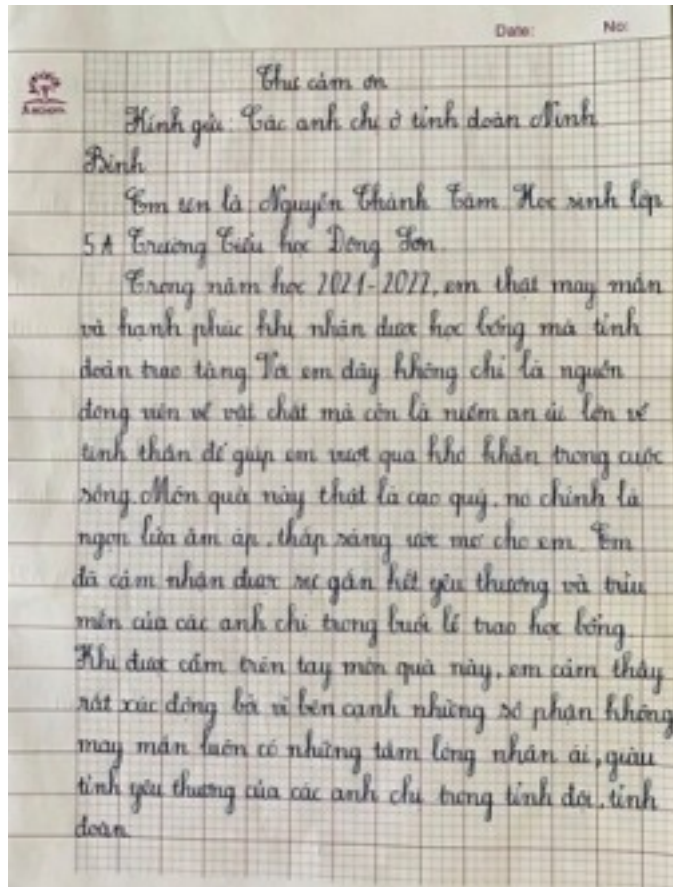 Date: No:
Thư cảm ơn
Kính gửi: Các anh chị ở tỉnh đoàn Ninh
Bình
Em tên là Nguyễn Thành Tâm Học sinh lớp
5A Trường Tiểu học Đông Sơn.
Trong năm học 2021-2022, em thật may mắn
và hạnh phúc khi nhận được học bổng mà tỉnh
đoàn trao tặng Với em đây không chỉ là nguồn
động viên về vật chất mà còn là niềm an ủi lớn về
tinh thần để giúp em vượt qua khó khăn trong cuộc
sống. Món quà này thật là cao quý, nó chính là
ngọn lửa ấm áp, thắp sáng ước mơ cho em. Em
đã cảm nhận được sự gắn kết yêu thương và trìu
mến của các anh chị trong buổi lễ trao học bổng.
Khi được cầm trên tay món quà này, em cảm thấy
rất xúc động bở vì bên cạnh những số phận không
may mắn luôn có những tấm lòng nhân ái, giàu
tình yêu thương của các anh chị trong tỉnh đội, tỉnh
đoàn